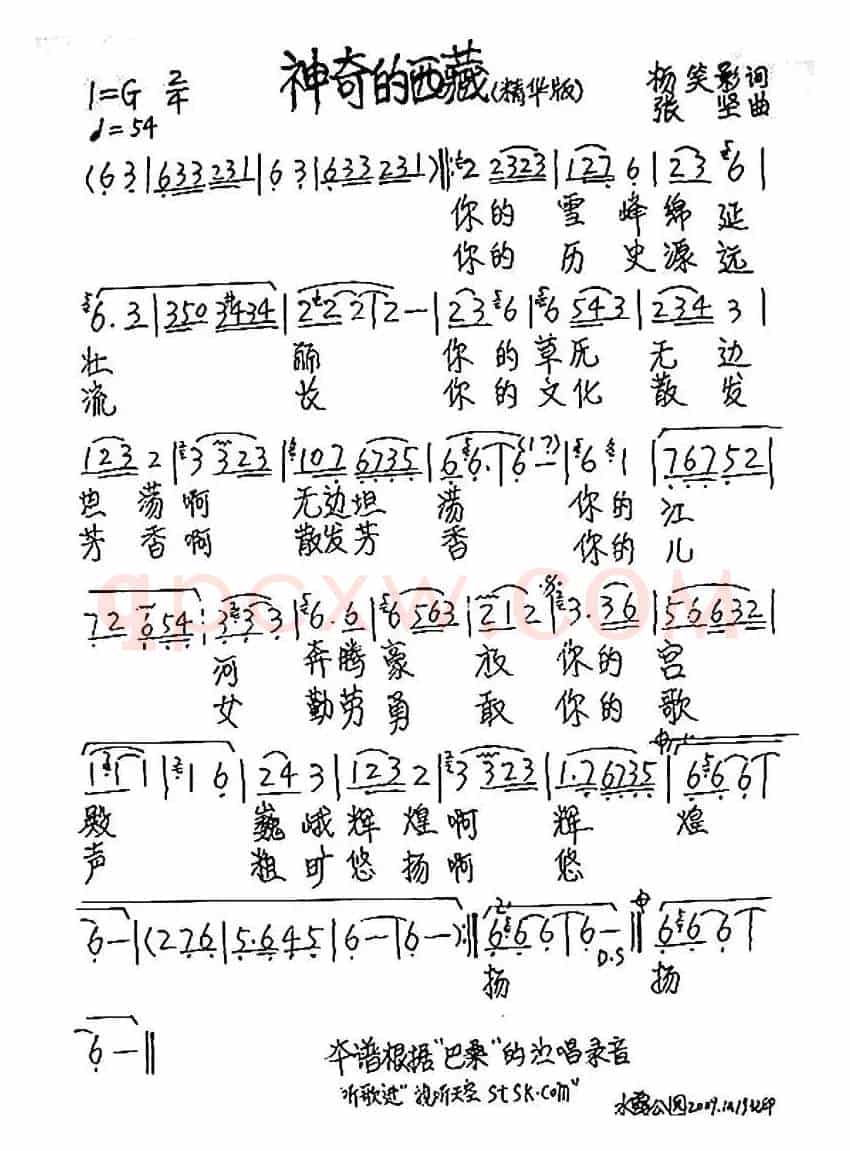 神奇的西藏(精华版)
1=G 2/4
♩=54
杨笑影 词
张坚 曲
(6 3 | 633 231 | 6 3 | 633 231) ‖: 2 2323 | 127 6 | 23 6 |
你的 雪峰绵延
你的 历史源远
6. 3 | 350 3#434 | 22 21 2 — | 23 6 | 6 543 | 234 3 |
壮 丽 你的草原 无边
流 长 你的文化 散发
123 2 | 3 323 | 107 6735 | 66. 6 — | 6 1 | 76752 |
坦荡啊 无边坦荡 你的江
芳香啊 散发芳香 你的儿
72 654 | 333 | 6. 6 | 6 563 | 212 | 3. 36 | 56632 |
河 奔腾豪放 你的宫
女 勤劳勇敢 你的歌
111 | 1 6 | 24 3 | 123 2 | 3 323 | 1.7 6735 | 66 6
殿 巍峨辉煌啊 辉 煌
声 粗旷悠扬啊 悠
6 — | (276 | 5.645 | 6 — | 6 —) :‖ 66 6 | 6 — ‖ 66 6
D.S
扬 扬
6 — ‖
本谱根据"巴桑"的演唱录音
听歌进"视听天空 stsk.com"
qpcxw.com